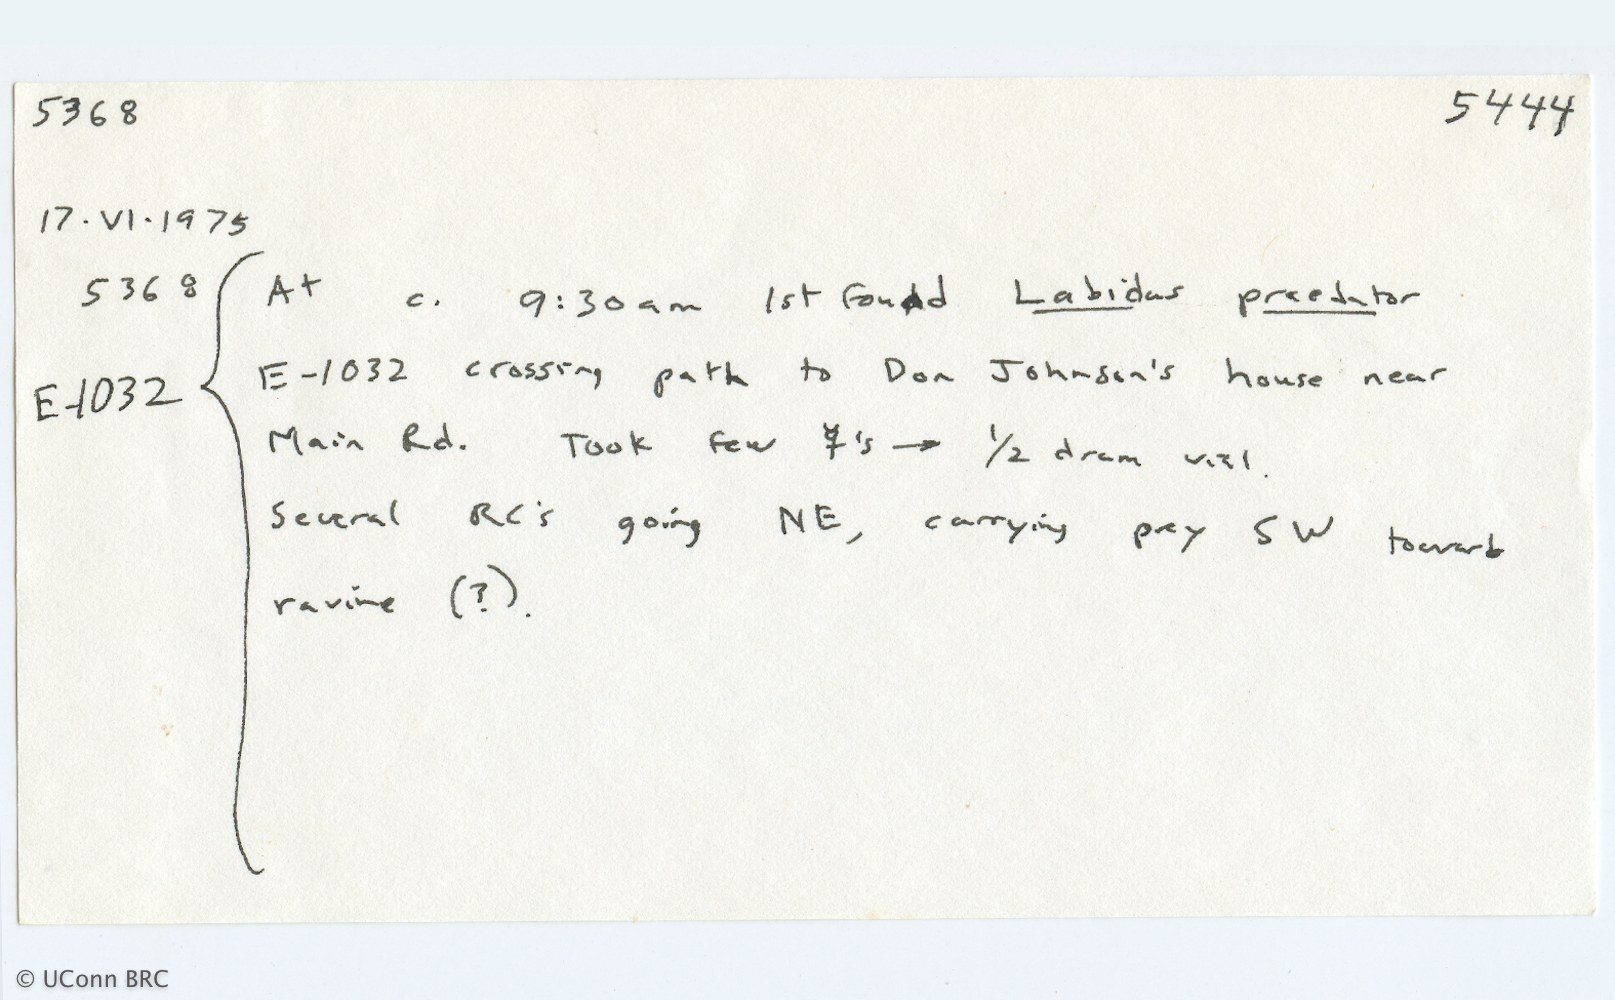 5368 5444
17·VI·1975
5368 At c. 9:30am 1st found Labidus praedator
E-1032 E-1032 crossing path to Don Johnson's house near
Main Rd. Took few ☿'s → 1/2 dram vial.
Several RC's going NE, carrying prey SW toward
ravine (?).
© UConn BRC